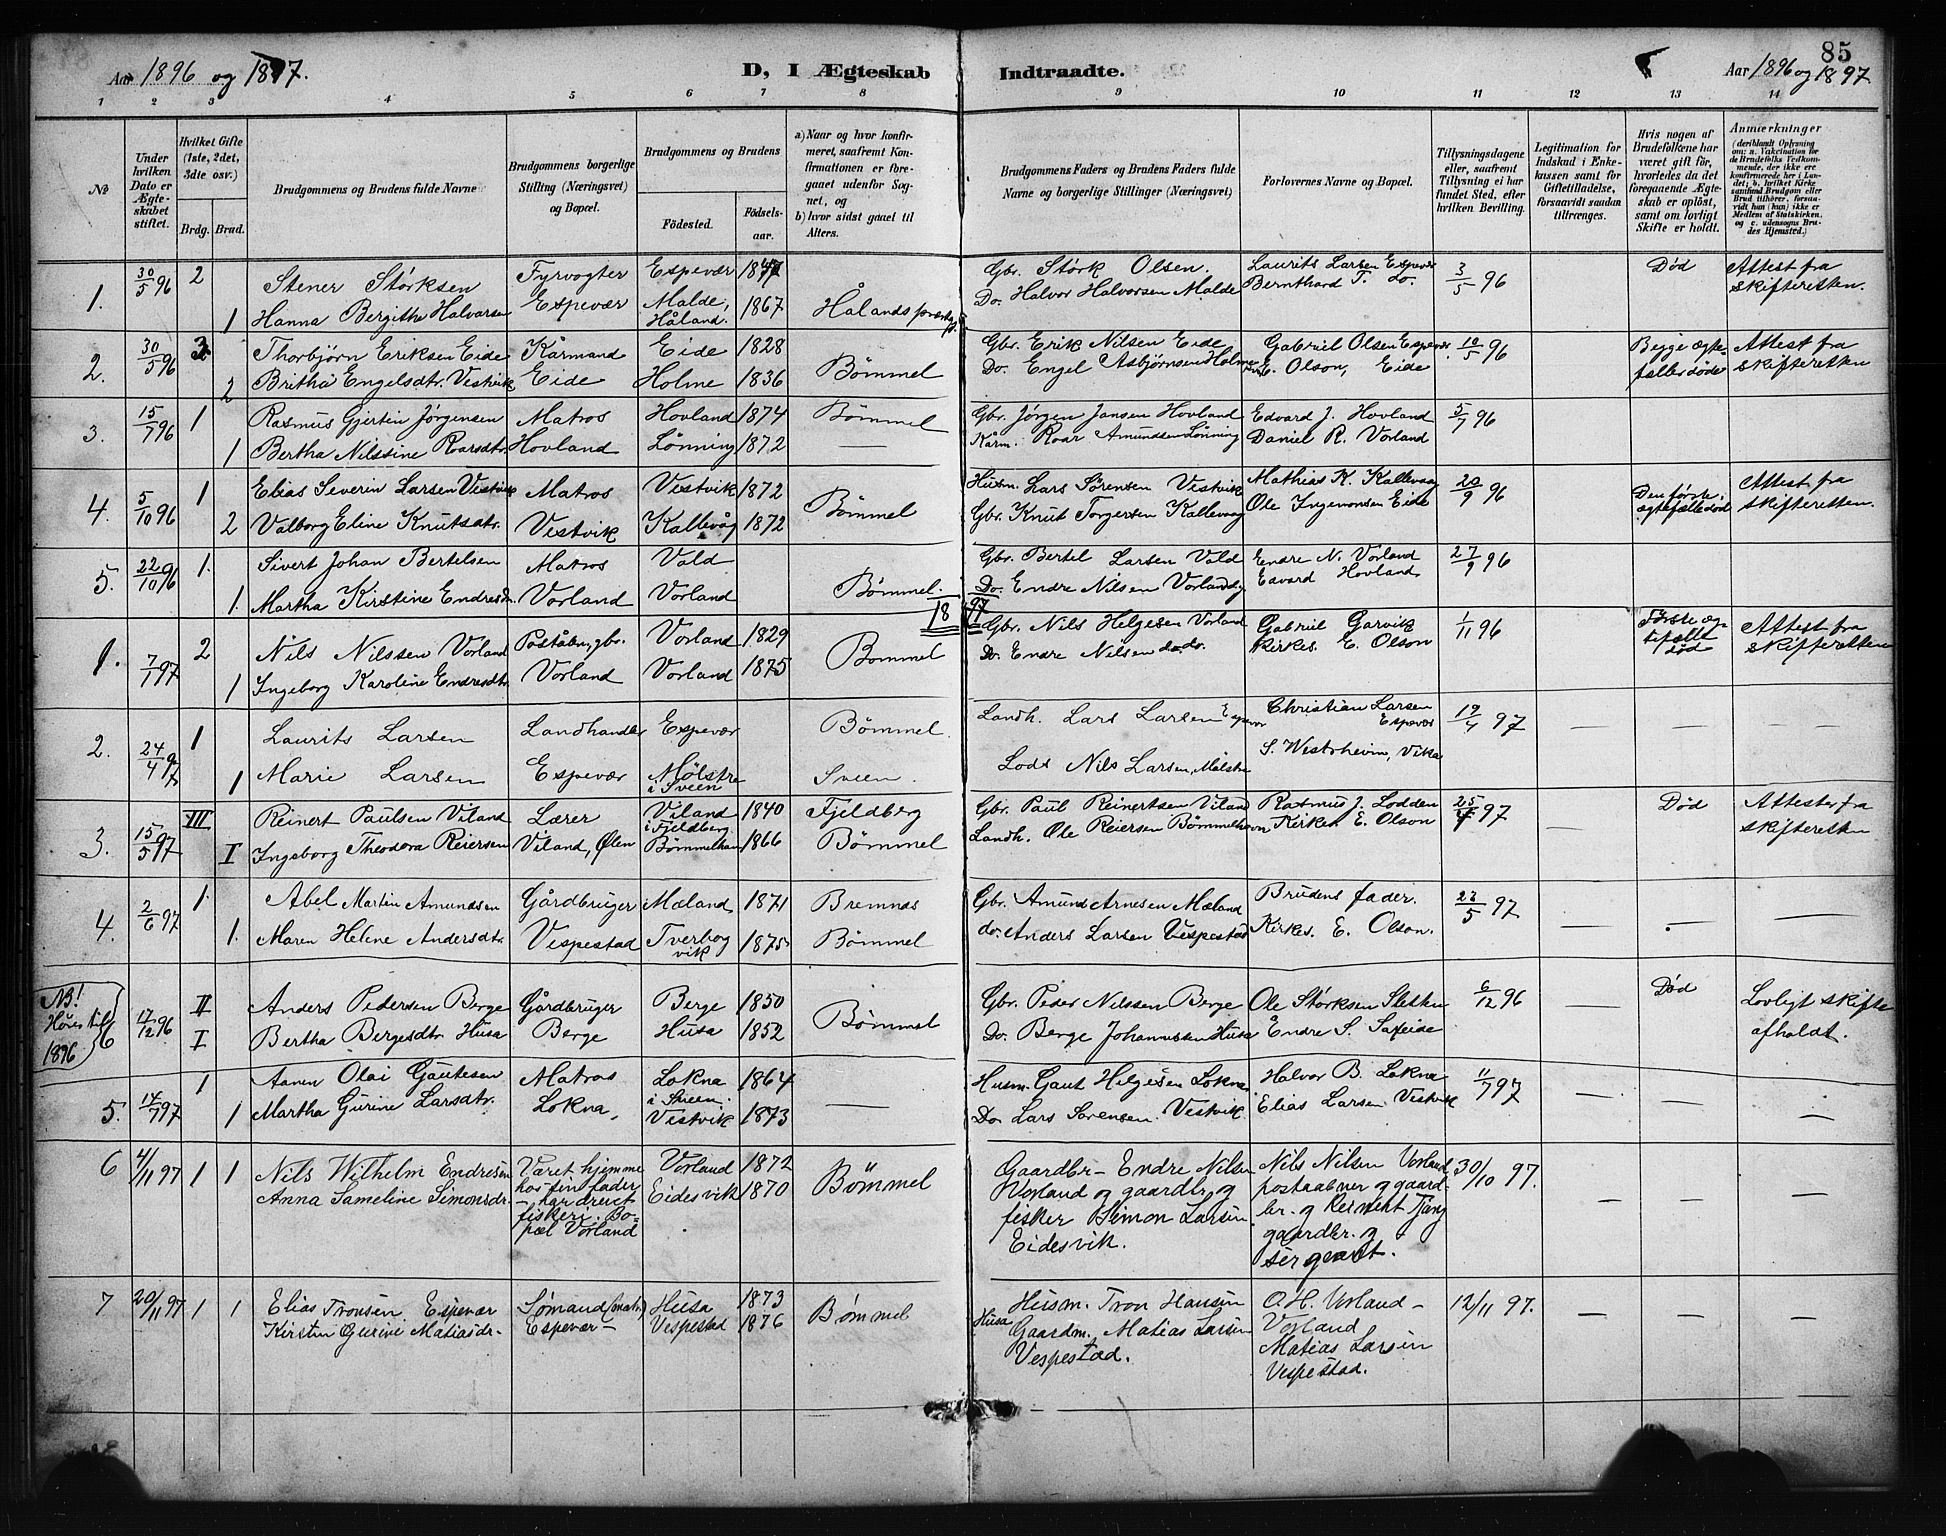 85
Aar 1896 og 1897.
D, I Ægteskab Indtraadte.
Aar 1896 og 1897
1 2 3 4 5 6 7 8 9 10 11 12 13 14
No
Under hvilken Dato er Ægteskabet stiftet.
Hvilket Gifte (1ste, 2det, 3die osv.)
Brdg. Brud.
Brudgommens og Brudens fulde Navne
Brudgommens borgerlige Stilling (Næringsvei) og Bopæl.
Brudgommens og Brudens
Födested.
Födselsaar.
a) Naar og hvor konfirmeret, saafremt Konfirmationen er foregaaet udenfor Sognet, og
b) hvor sidst gaaet til Alters.
Brudgommens Faders og Brudens Faders fulde Navne og borgerlige Stillinger (Næringsvei)
Forlovernes Navne og Bopæl.
Tillysningsdagene eller, saafremt Tillysning ei har fundet Sted, efter hvilken Bevilling.
Legitimation for Indskud i Enkekassen samt for Giftetilladelse, forsaavidt saadan tiltrænges.
Hvis nogen af Brudefolkene har været gift för, hvorledes da det foregaaende Ægteskab er oplöst, samt om lovligt Skifte er holdt.
Anmærkninger (deriblandt Oplysning om: a. Vakcination for de Brudefolks Vedkommende, der ikke ere konfirmerede her i Landet; b. hvilket Kirkesamfund Brudgom eller Brud tilhörer, forsaavidt han (hun) ikke er Medlem af Statskirken, og c. udensogns Brudes Hjemsted.)
1. 30/5 96 2 Stener Størksen Fyrvogter Espevær Gbr. Størk Olsen. Laurits Larsen Espevær 3/5 96 Død Attest fra skifteretten.
1 Hanna Bergithe Halvorsen Espevær Malde, Håland. 1867 Hålands Do. Halvor Halvorsen Malde Bernthard T. Do.
2. 30/5 96 3 Thorbjørn Eriksen Eide Kårmand Eide 1828 Gbr. Erik Nilsen Eide Gabriel Olsen Espevær. 10/5 96 Begge ægtefæller døde Attest fra skifteretten
2 Britha Engelsdtr. Vestvik Eide Holme 1836 Bømmel Do. Engel Asbjørnsen Holme E. Olson, Eide
3. 15/7 96 1 Rasmus Gjertin Jørgensen Matros Hovland 1874 Bømmel Gbr. Jørgen Jansen Hovland Edvard J. Hovland 5/7 96
1 Bertha Nilssine Roarsdtr. Hovland Lønning 1872 — Kårm. Roar Amundsen Lønning Daniel R. Vorland
4. 5/10 96 1 Elias Severin Larsen Vestvik Matros Vestvik 1872 Bømmel Husm. Lars Sørensen Vestvik Mathias K. Kallevaag 20/9 96 Den første ægtefælle død Attest fra skifteretten.
2 Valborg Eline Knutsdtr. Vestvik Kallevåg 1872 Gbr. Knut Torgersen Kallevaag Ole Ingemonsen Eide
5. 22/10 96 1. Sivert Johan Bertelsen Matros Vold Bømmel. Gbr. Bertel Larsen Vold Endre N. Vorland 27/9 96
1. Martha Kirstine Endresdtr. Vorland Vorland Do. Endre Nilsen Vorland Edvard Hovland
1897
1. 7/1 97 2 Nils Nilssen Vorland Poståbn, gbr. Vorland 1829 Bømmel Gbr. Nils Helgesen Vorland Gabriel Garvik 1/11 96 Første ægtefælle død Attest fra skifteretten
1 Ingeborg Karoline Endresdtr. Vorland Vorland 1875 Do. Endre Nilsen do. do. Kirkes. E. Olson
2. 24/4 97 1 Laurits Larsen Landhandler Espevær Bømmel. Landh. Lars Larsen Espevær Christian Larsen Espevær 19/4 97 — — —
1 Marie Larsen Espevær Mølstre i Sveen Sveen. Lods Nils Larsen, Mølstre S. Westrheim, Viksa
3. 15/5 97 III Reinert Paulsen Viland Lærer Viland i Fjeldberg 1840 Fjeldberg Gbr. Paul Reinertsen Viland Rasmus J. Lodden 25/4 97 — Død Attest fra skifteretten
I Ingeborg Theodora Reiersen Viland, Ølen Bømmelhavn 1866 Bømmel Landh. Ole Reiersen Bømmelhavn Kirkes. E. Olson
4. 2/6 97 1. Abel Martin Amundsen Gårdbruger Mæland 1871 Bremnæs Gbr. Amund Arnesen Mæland Brudens fader. 23/5 97 — — —
1. Maren Helene Andersdtr. Vespestad Tverborgvik 1875 Bømmel do. Anders Larsen Vespestad Kirkes. E. Olson.
NB! Hører til 1896 6 17/12 96 II Anders Pedersen Berge Gårdbruger Berge 1850 Bømmel Gbr. Peder Nilssen Berge Ole Størksen Sletten 6/12 96 — Død Lovligt skifte afholdt.
I Bertha Bergesdtr. Husa Berge Husa 1852 Do. Berge Johannessen Husa Endre S. Søfeide
5. 17/7 97 1 Aanen Olai Gautesen Matros Lokna i Sveen. 1864 — Husm. Gaut Helgesen Lokna Halvor B. Lokna 11/7 97 — — —
1 Martha Gurine Larsdtr. Lokna, Vestvik 1873 Do. Lars Sørensen Vestvik Elias Larsen Vestvik
6 4/11 97 1 1 Nils Wilhelm Endresen Været hjemme Vorland 1872 Bömmel Gaardbr – Endre Nilsen Nils Nilsen Vorland 30/10 97. — — —
Anna Sameline Simonsdr. hos sin fader Eidesvik 1870 Vorland og gaardbr. og postaabner og gaard-
– har drevet fisker Simon Larsen br. og Reinert Tjong
fiskeri. Bo- Eidesvik. gaardbr. og
pæl Vorland sergeant.
7 20/11 97 1 1 Elias Tronsen Espevær Sømand (matr.) Husa 1873 Bømmel Husm. Tron Hansen Husa O. H. Vorland – 12/11 97. — — —
Kirsten Gurine Matiasdr. Espevær – Vespestad 1876 Gaardm. Matias Larsen Vorland
Vespestad. Matias Larsen
Vespestad.